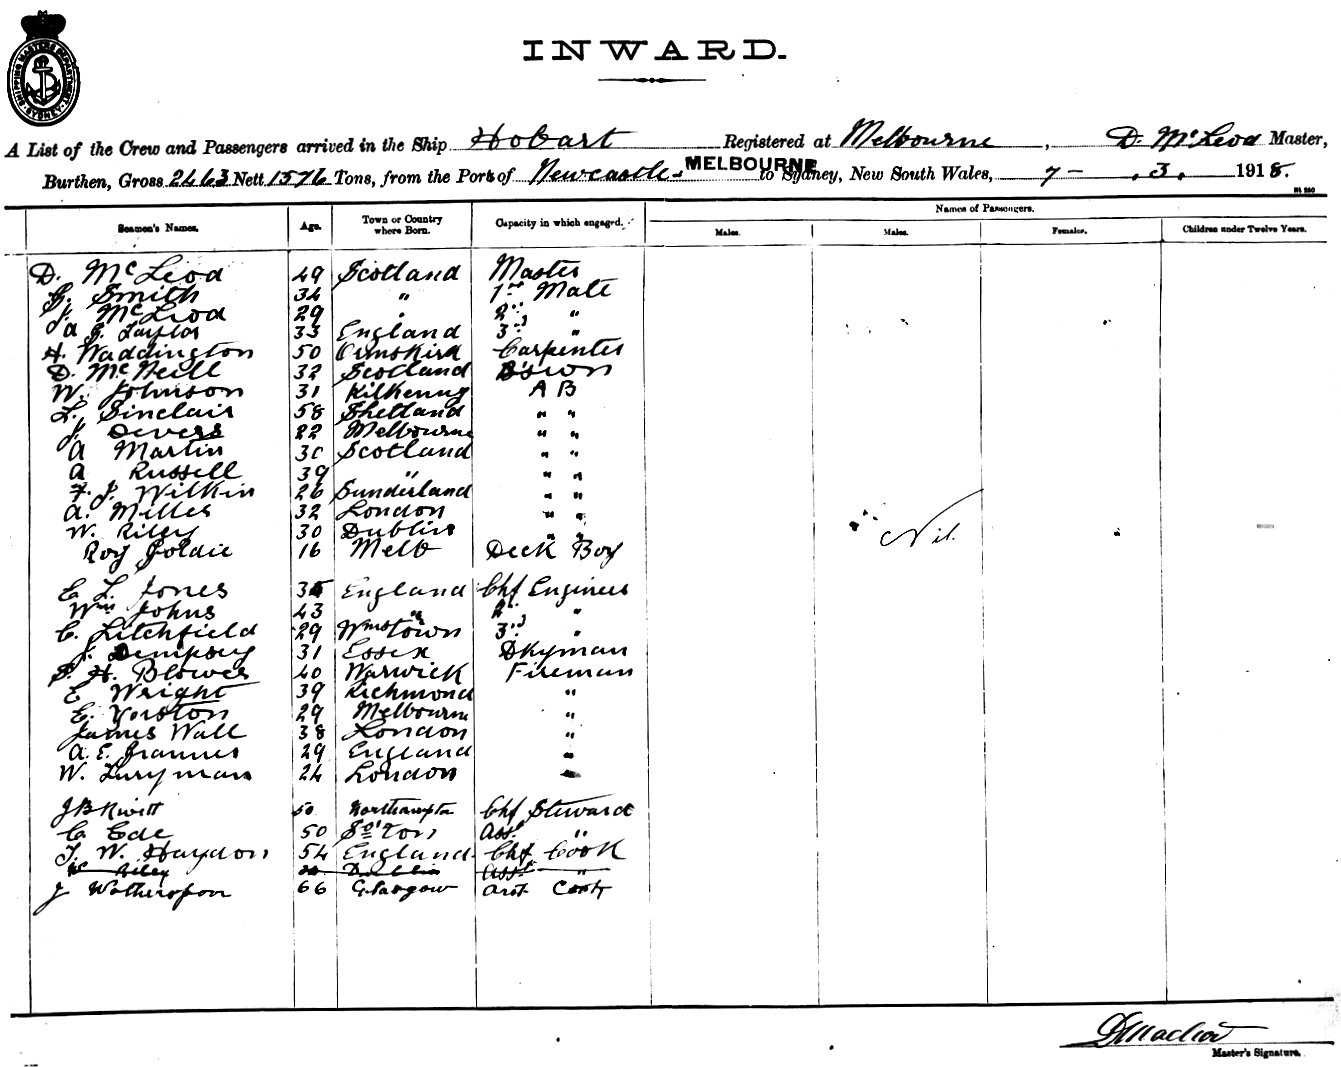 SHIPPING MASTERS DEPARTMENT SYDNEY
INWARD.
A List of the Crew and Passengers arrived in the Ship Hobart Registered at Melbourne, D. McLeod Master,
Burthen, Gross 2463 Nett 1576 Tons, from the Port of Newcastle - MELBOURNE to Sydney, New South Wales, 7 - . 3. 1918.
Names of Passengers.
Seamen's Names. Age. Town or Country where Born. Capacity in which engaged. Males. Males. Females. Children under Twelve Years.
D. McLeod 49 Scotland Master
G. Smith 34 " 1st Mate
J. McLeod 29 " 2nd "
A G. Taylor 33 England 3rd "
H. Waddington 50 Ormskirk Carpenter
D. McNeill 32 Scotland B'swn
W. Johnson 31 Kilkenny A B
L. Sinclair 58 Shetland " "
J. Devers 22 Melbourne " "
A Martin 30 Scotland " "
A Russell 39 " " "
F. J. Wilkin 26 Sunderland " "
A. Miller 32 London " "
W. Riley 30 Dublin " "
Nil.
Roy Goldie 16 Melb Deck Boy
E L. Jones 35 England Chf Engineer
Wm Johns 43 " 2nd "
C. Litchfield 29 Wmstown 3rd "
J. Dempsey 31 Essex Dkyman
S. H. Blower 40 Warwick Fireman
E Wright 39 Richmond "
E. Yorston 29 Melbourne "
James Wall 38 London "
A. E. 29 England "
W. 24 London "
J B 50 Northampton Chf Steward
C Ede 50 So'ton Asst "
T. W. Haydon 54 England Chf Cook
W Riley Dublin Asst "
J Wotherspoon 66 Glasgow Asst Cook
D McLeod
Master's Signature.